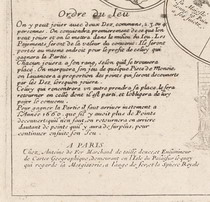 Ordre du Jeu
On y peut jouer avec deux Dez, commune, a 3. ou 4
personnes. On conviendra premierement de ce que l'on
peut jouer et on le mettra dans le milieu du Jeu. Les
Payements seront de la valeur du convenu: Ils seront
gagnera la Partie
Chacun jouera a son rang, selon qu'il se trouvera
place. On marquera son jeu de quelque Piece de Monoie,
on l'avancera a proportion des points qui seront decouverts
par les Dez, chacun jouera
Celuy qui rencontrera un autre prendra sa place, le fera
retourner en celle dont il est parti, et l'obligera de luy
payer le convenu.
Pour gagner la Partie il faut arriver justement a
l'Année 1660. que s'il y avoit plus de Points
il faut retourner en arriere
dautant de points qu'il y aura de surplus, pour
continuer ensuite son Jeu.
A PARIS
Chez, Antoine de Fer Marchand de taille douce, et Enlumineur
de Cartes Geographiques, demeurant en l'Isle du Palais sur le quay
qui regarde la Megisserie, a l'Aage de fer, et la Sphere Royale